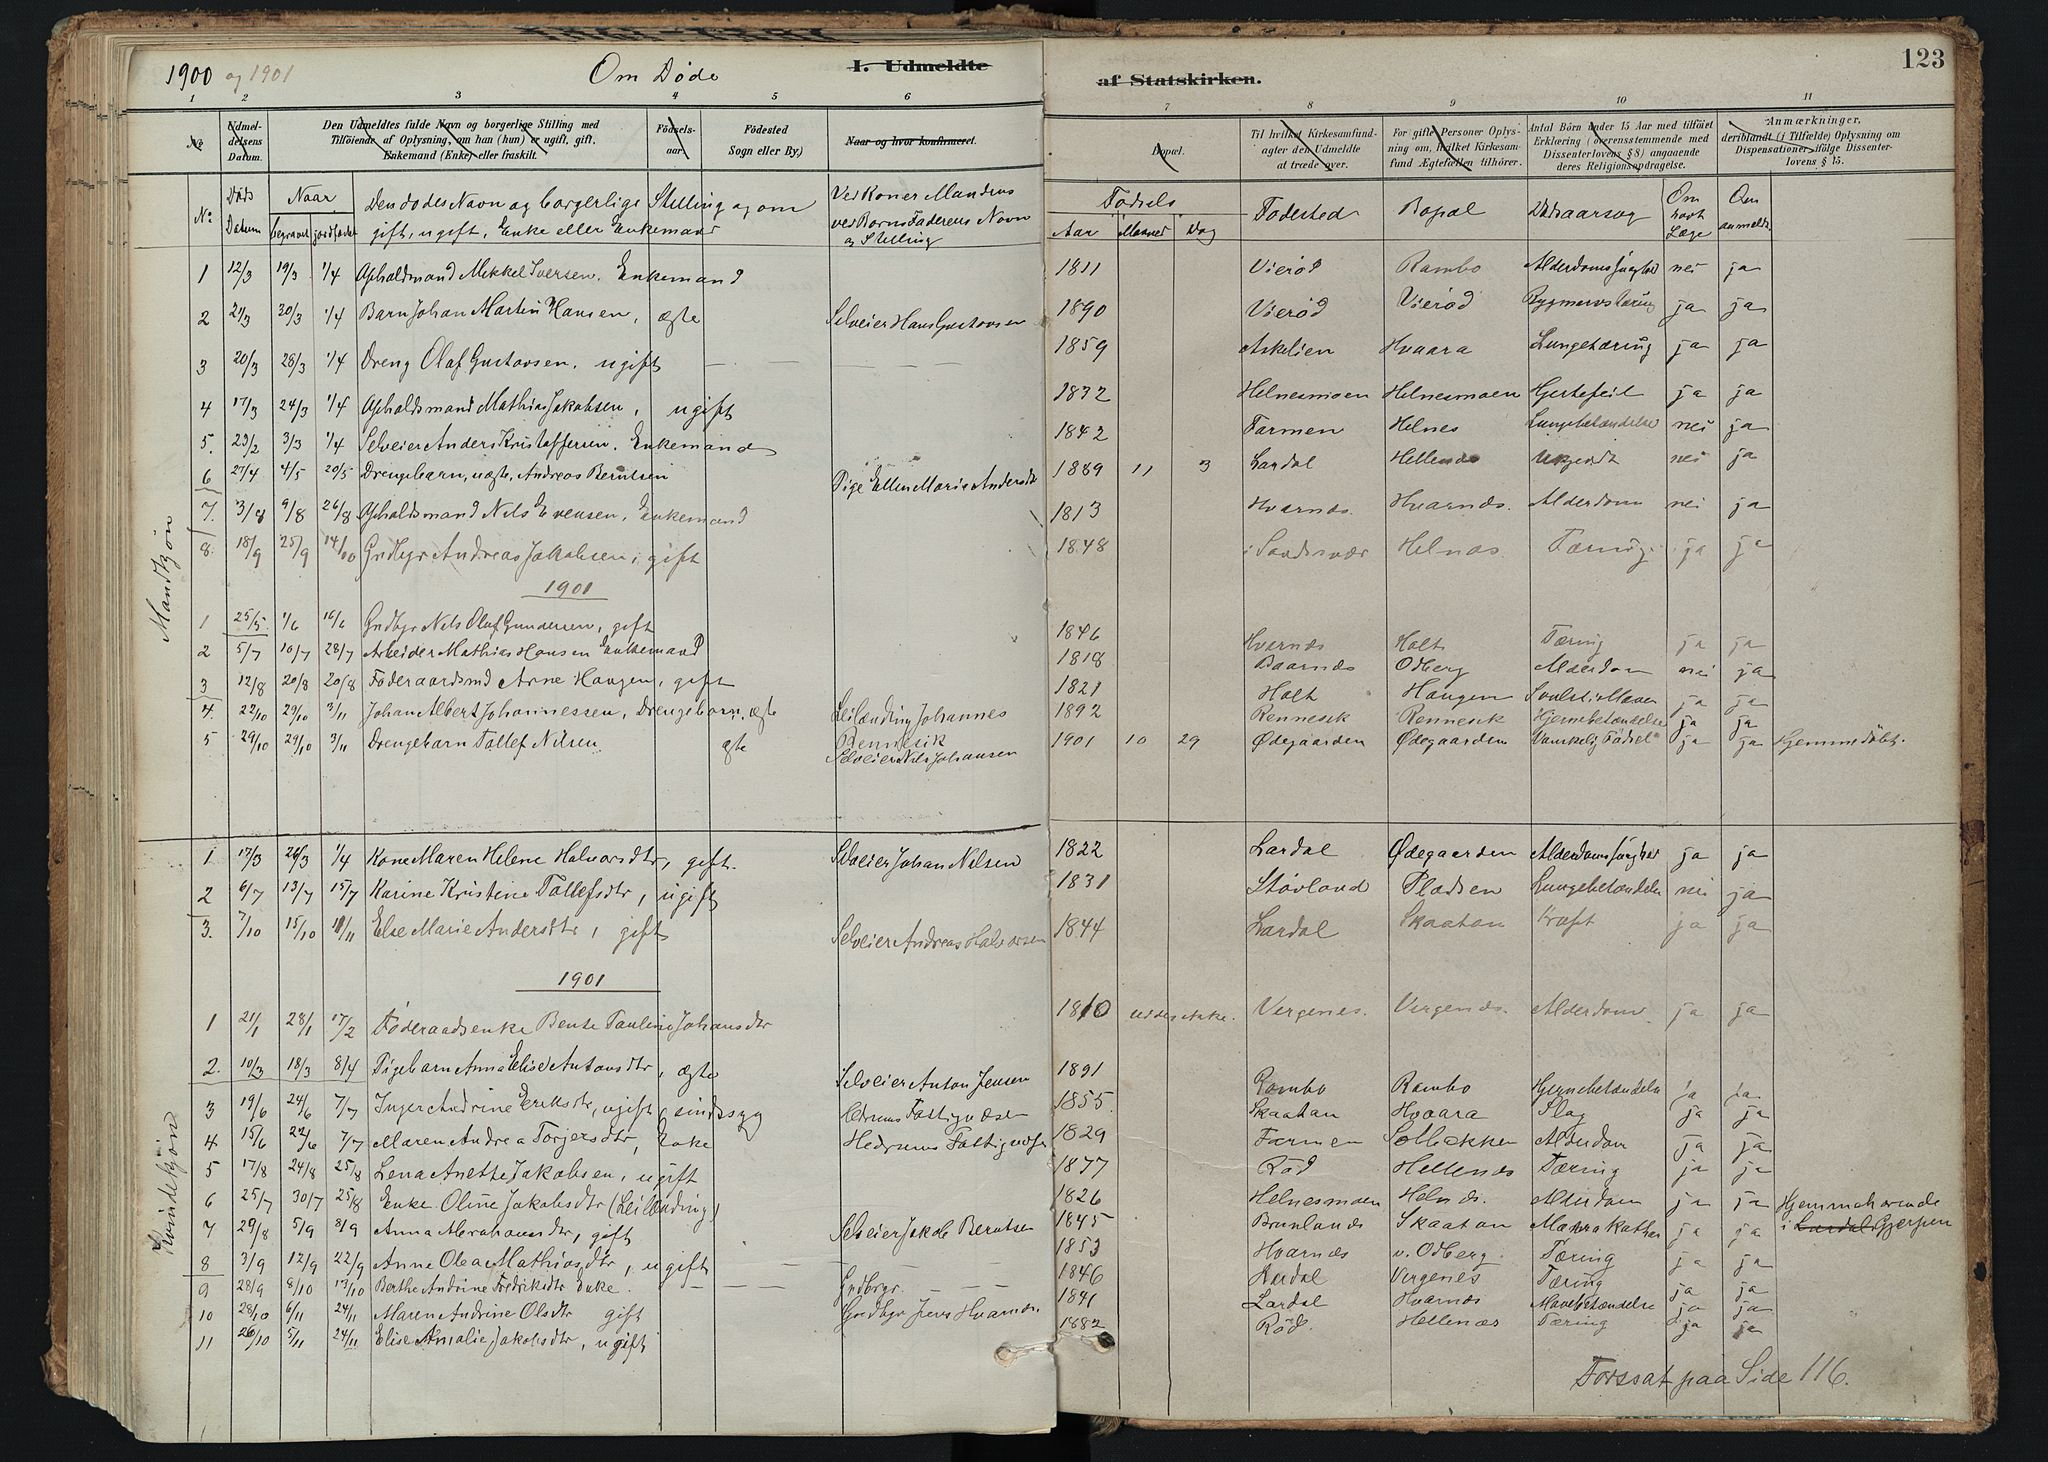 1900 og 1901 Om Døde I. Udmeldte af Statskirken. 123
1 2 3 4 5 6 7 8 9 10 11
No Udmeldelsens Datum. Den Udmeldtes fulde Navn og borgerlige Stilling med Tilføiende af Oplysning, om han (hun) er ugift, gift, Enkemand (Enke) eller fraskilt. Fødselsaar. Fødested Sogn eller By.) Naar og hvor konfirmeret. Bopæl. Til hvilket Kirkesamfund agter den Udmeldte at træde over. For gifte Personer Oplysning om, hvilket Kirkesamfund Ægtefællen tilhører. Antal Børn under 15 Aar med tilføiet Erklæring (overensstemmende med Dissenterlovens § 8) angaaende deres Religionsopdragelse. Anmærkninger, deriblandt (i Tilfælde) Oplysning om Dispensationer ifølge Dissenterlovens § 15.
No Døds Datum Naar begravet jordfæstet Den dødes Navn og borgerlige Stilling og om gift, ugift, Enke eller Enkemand Ved Koner Mandens ved Børn Faderens Navn og Stilling Fødsels Aar Maaned Dag Fødested Bopæl Dødsaarsag Om havt Læge Om anmeldt
Mandkjøn
1 12/3 19/3 1/4 Opholdsmand Mikkel Iversen, Enkemand 1811 Vierød Rambo nei ja
2 21/3 30/3 1/4 Barn Johan Martin Hansen, ægte Selveier Hans Gustavsen 1890 Vierød Vierød Rygmarvstæring ja ja
3 20/3 28/3 1/4 Dreng Olaf Gustavsen, ugift 1859 Askelien Hvaara Lungetæring ja ja
4 17/3 24/3 1/4 Opholdsmand Mathias Jakobsen, ugift 1832 Helnesmoen Helnesmoen Hjertefeil ja ja
5. 23/2 3/3 1/4 Selveier Anders Kristoffersen, Enkemand 1842 Farmen Helnes Lungebetændelse nei ja
6 27/4 4/5 20/5 Drengebarn, uægte, Andreas Berntsen Pige Ellen Marie Andersdt 1889 11 3 Lardal Hellenæs Ukjendt nei ja
7. 3/8 9/8 26/8 Opholdsmand Nils Evensen, Enkemand 1813 Hvarnæs. Hvarnæs. Alderdom nei ja
8. 18/9 25/9 14/10 Grdbgr Andreas Jakobsen, gift 1848 i Sandsvær Helnæs. Tæring. ja ja
1901
1 25/5. 1/6 16/6 Grdbgr Nils Olaf Gundersen, gift 1846 Hvarnæs Holt Tæring ja ja
2 5/7 10/7 28/7 Arbeider Mathias Hansen Enkemand 1818 Baarnæs Odberg Alderdom nei ja
3 12/8 20/8 20/8 Føderaadsmd Arne Haugen, gift 1821 Holt Haugen Svulst i Maven ja ja
4. 22/10 29/10 3/11 Johan Albert Johannessen, Drengebarn, ægte Leilænding Johannes Rennesik 1892 Rennesik Rennesik Hjernebetændelse ja ja
5 29/10 29/10 3/11 Drengebarn Tollef Nilsen ægte Selveier Nils Johansen 1901 10 29 Ødegaarden Ødegaarden Vanskelig Fødsel ja ja Hjemmedøbt.
Kvindekjøn
1 17/3 26/3 1/4 Kone Maren Helene Halvorsdtr, gift. Selveier Johan Nilsen 1822 Lardal Ødegaarden ja ja
2 6/7 13/7 15/7 Karine Kristine Tollefsdtr, ugift 1831 Støvland Pladsen Lungebetændelse nei ja
3. 7/10 15/10 11/11 Else Marie Andersdtr, gift Selveier Andreas Halvorsen 1844 Lardal Skaatan Kræft ja ja
1901
1 21/1 28/1 17/2 Føderaadsenke Bente Pauline Johansdtr 1810 vides ikke. Vergenes. Vergenæs. Alderdom ja ja
2. 10/3 18/3 8/4 Pigebarn Anna Elise Antonsdtr, ægte Selveier Anton Jensen 1891 Rambo Rambo Hjernebetændelse ja ja
3 19/6 24/6 7/7 Inger Andrine Eriksdtr, ugift, sindssyg Hedrums Fattigvæsen 1855. Skaatan Hvaara Slag ja ja
4 15/6 22/6 7/7 Maren Andrea Torjersdtr, Enke Hedrums Fattigvæsn 1829 Farmen Solbakken Alderdom ja ja
5 17/8 24/8 25/8 Lena Anette Jakobsen, ugift 1877 Rød Hellenæs Tæring ja ja
6 25/7 30/7 25/8 Enke Oline Jakobsdtr (Leilænding) 1826 Helnesmoen Helnæs. Alderdom ja ja Hjemmehørende
7 29/8 5/9 8/9 Anna Abrahamsdtr, gift Selveier Jakob Berntsen 1845 Brunlanæs Skaatan ja ja i Lardal Gjerpen
8 3/9 12/9 22/9 Anne Olea Mathiasdtr, ugift 1853 Hvarnæs v. Odberg. Tæring ja ja
9 28/9 8/10 13/10 Berthe Andrine Fredriksdtr Enke. Grdbrgr. 1846 Lardal Vergenes Tæring ja ja
10 28/10 6/11 24/11 Maren Andrine Olsdtr gift Grdbgr Jens Hvarnæs 1841 Lardal Hvarnæs Mavebetændelse ja ja
11 26/10 5/11 24/11 Elise Amalie Jakobsdtr, ugift 1882 Rød. Hellenæs Tæring ja ja
Forssat paa Side 116.